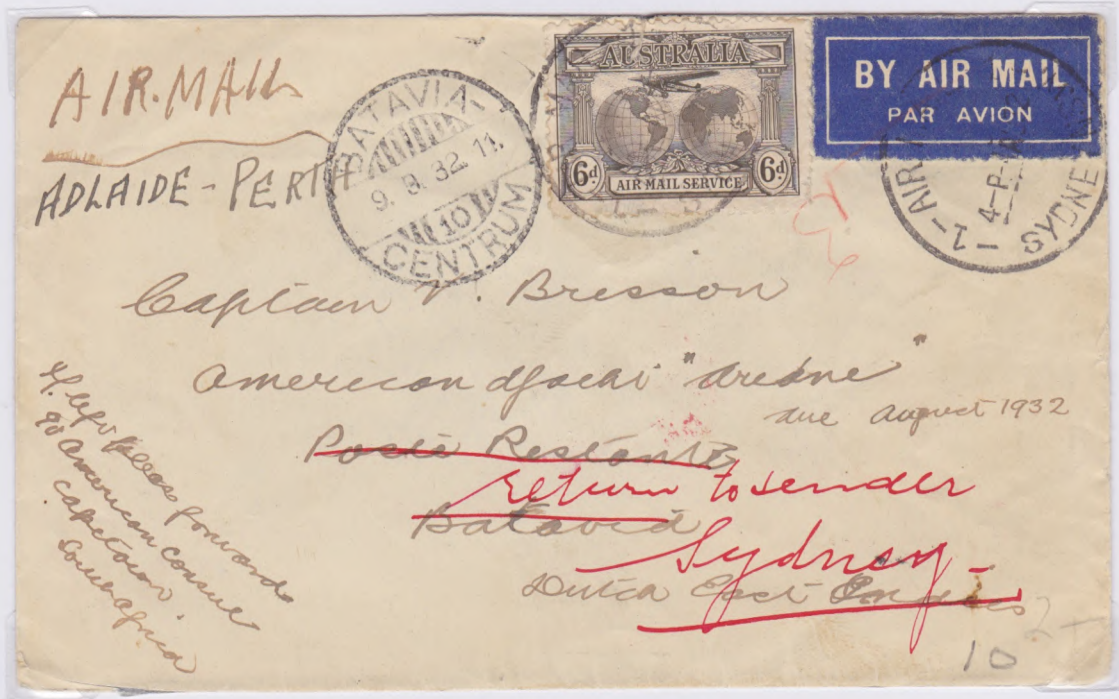 AIR. MAIL
ADLAIDE - PERTH
BATAVIA-
9. 8. 32. 11.
10
CENTRUM
AUSTRALIA
6d
AIR MAIL SERVICE
6d
BY AIR MAIL
PAR AVION
1 - AIR
4-P
SYDNEY
Captain V. Bresson
American Yacht "Ariane"
due August 1932
Poste Restante
return to sender
Batavia
Sydney -
Dutch East Indies
If left please forward
c/o American Consul
Capetown
South Africa
10